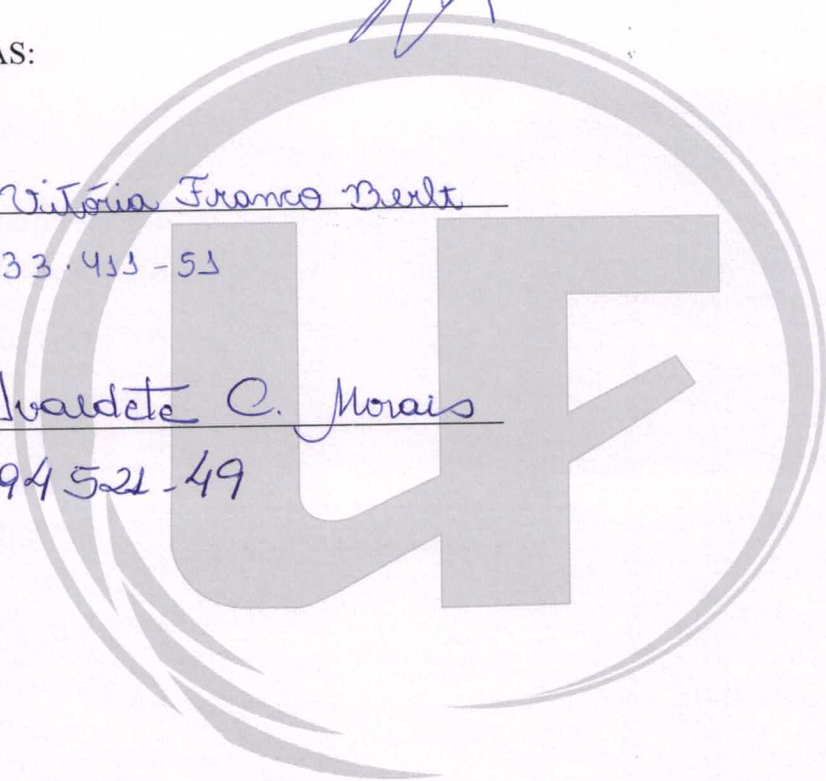 AS:
Vitória Franco Berlt
33.411-51
Ivaldete C. Morais
94 521-49
UF